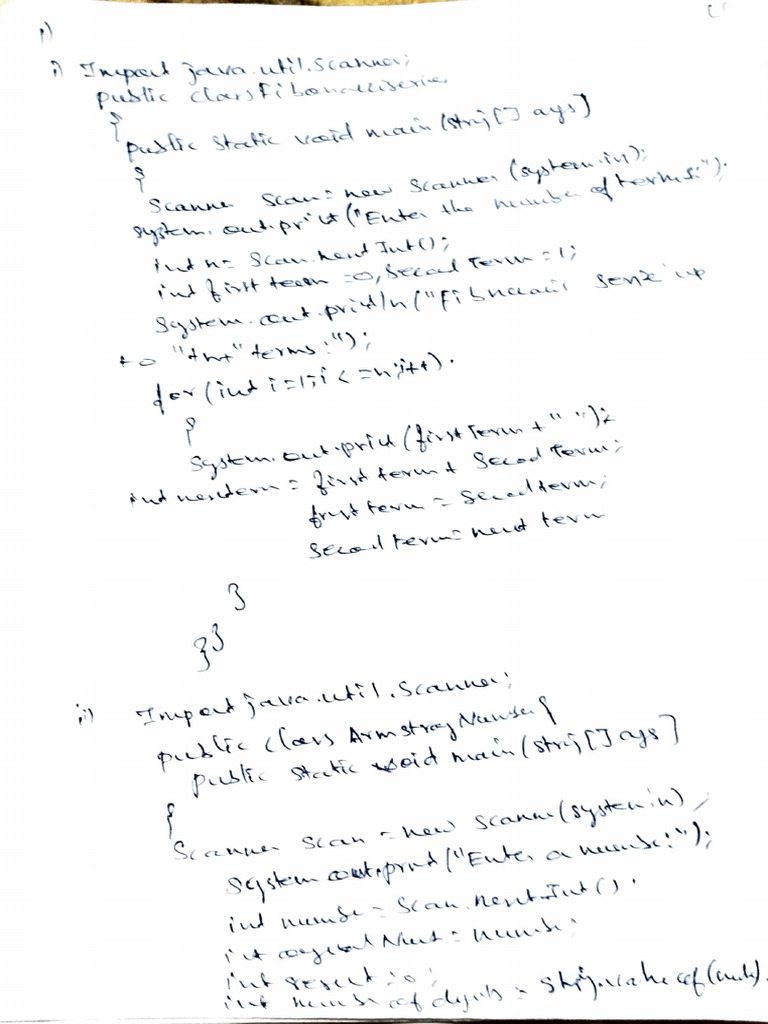 1)
i) Import java.util.Scanner;
public class Fibonacciseries
{
public static void main(string[] args]
{
Scanner Scan = new Scanner (system.in);
system.out.print("Enter the number of terms:").
int n = Scan.nentInt();
int first term = 0, Second Term = 1;
System.out.println("Fibonacci serie up
to "+n+" terms:");
for (int i=1; i<=n; i++).
{
System.out.print (first Term + " ");
int nextterm = first term + Second Term;
first term = Second term;
Second term = next term
}
}}
ii) Import java.util.Scanner;
public class Armstrong Number {
public static void main(string[] args]
{
Scanner Scan = new Scanner(system in);
System out.print("Enter a number:");
int number = Scan.nent.Int().
int original Num = number;
int result = 0;
int number of digits = String.value of(num).